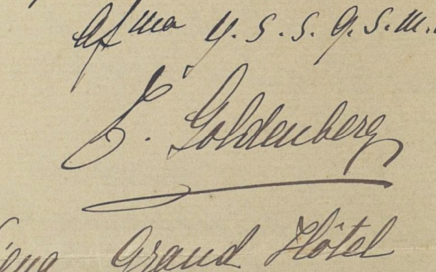 y. s. s. q. s. m.
E. Goldenberg
Grand Hôtel